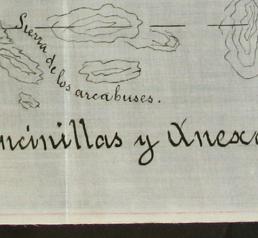 Sierra de los arcabuses.
ncinillas y Anexa